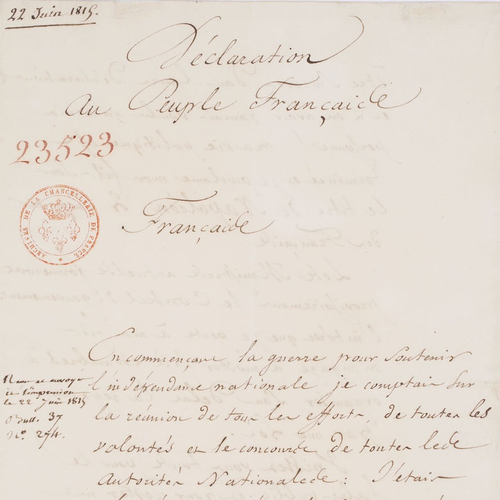 22 Juin 1815.
Déclaration
au Peuple Français
23523
ARCHIVES DE LA CHANCELLERIE DE FRANCE
Français
En commençant la guerre pour soutenir
l'indépendance nationale je comptais sur
Remise envoyé
à l'impression
le 22 Juin 1815
Bull. 37
No. 274.
la réunion de tous les efforts, de toutes les
volontés et le concours de toutes les
autorités Nationales : J'étais